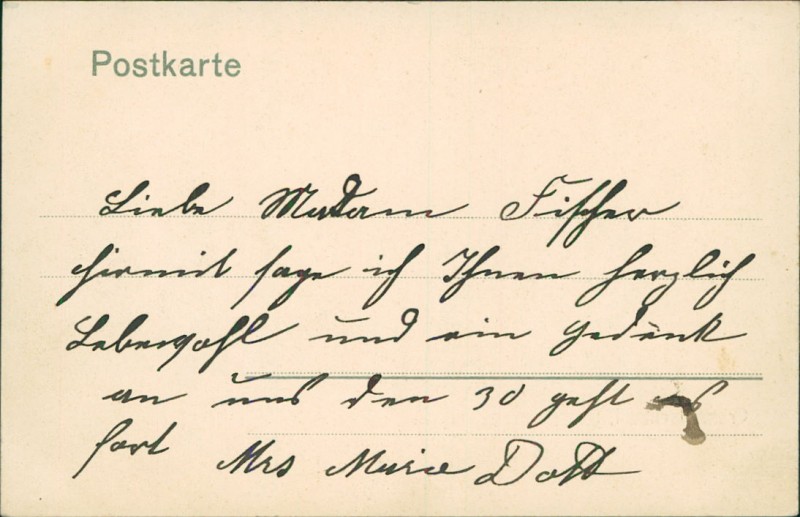 Postkarte
Liebe Madam Fischer
hirmit sage ich Ihnen herzlich
Lebewohl und ein gedenk
an uns den 30 geht es
fort Mrs Marie Dott